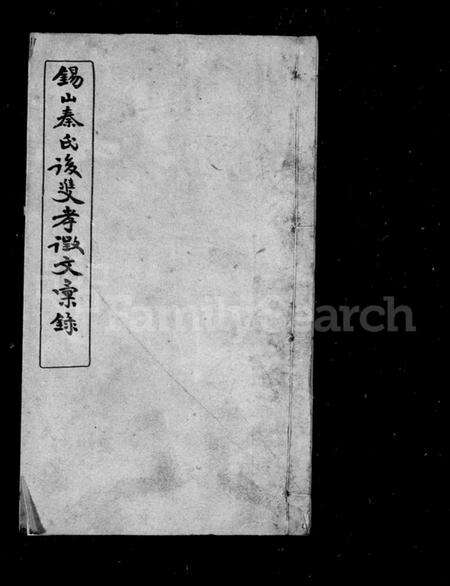 錫山秦氏後雙孝徵文彙錄
FamilySearch